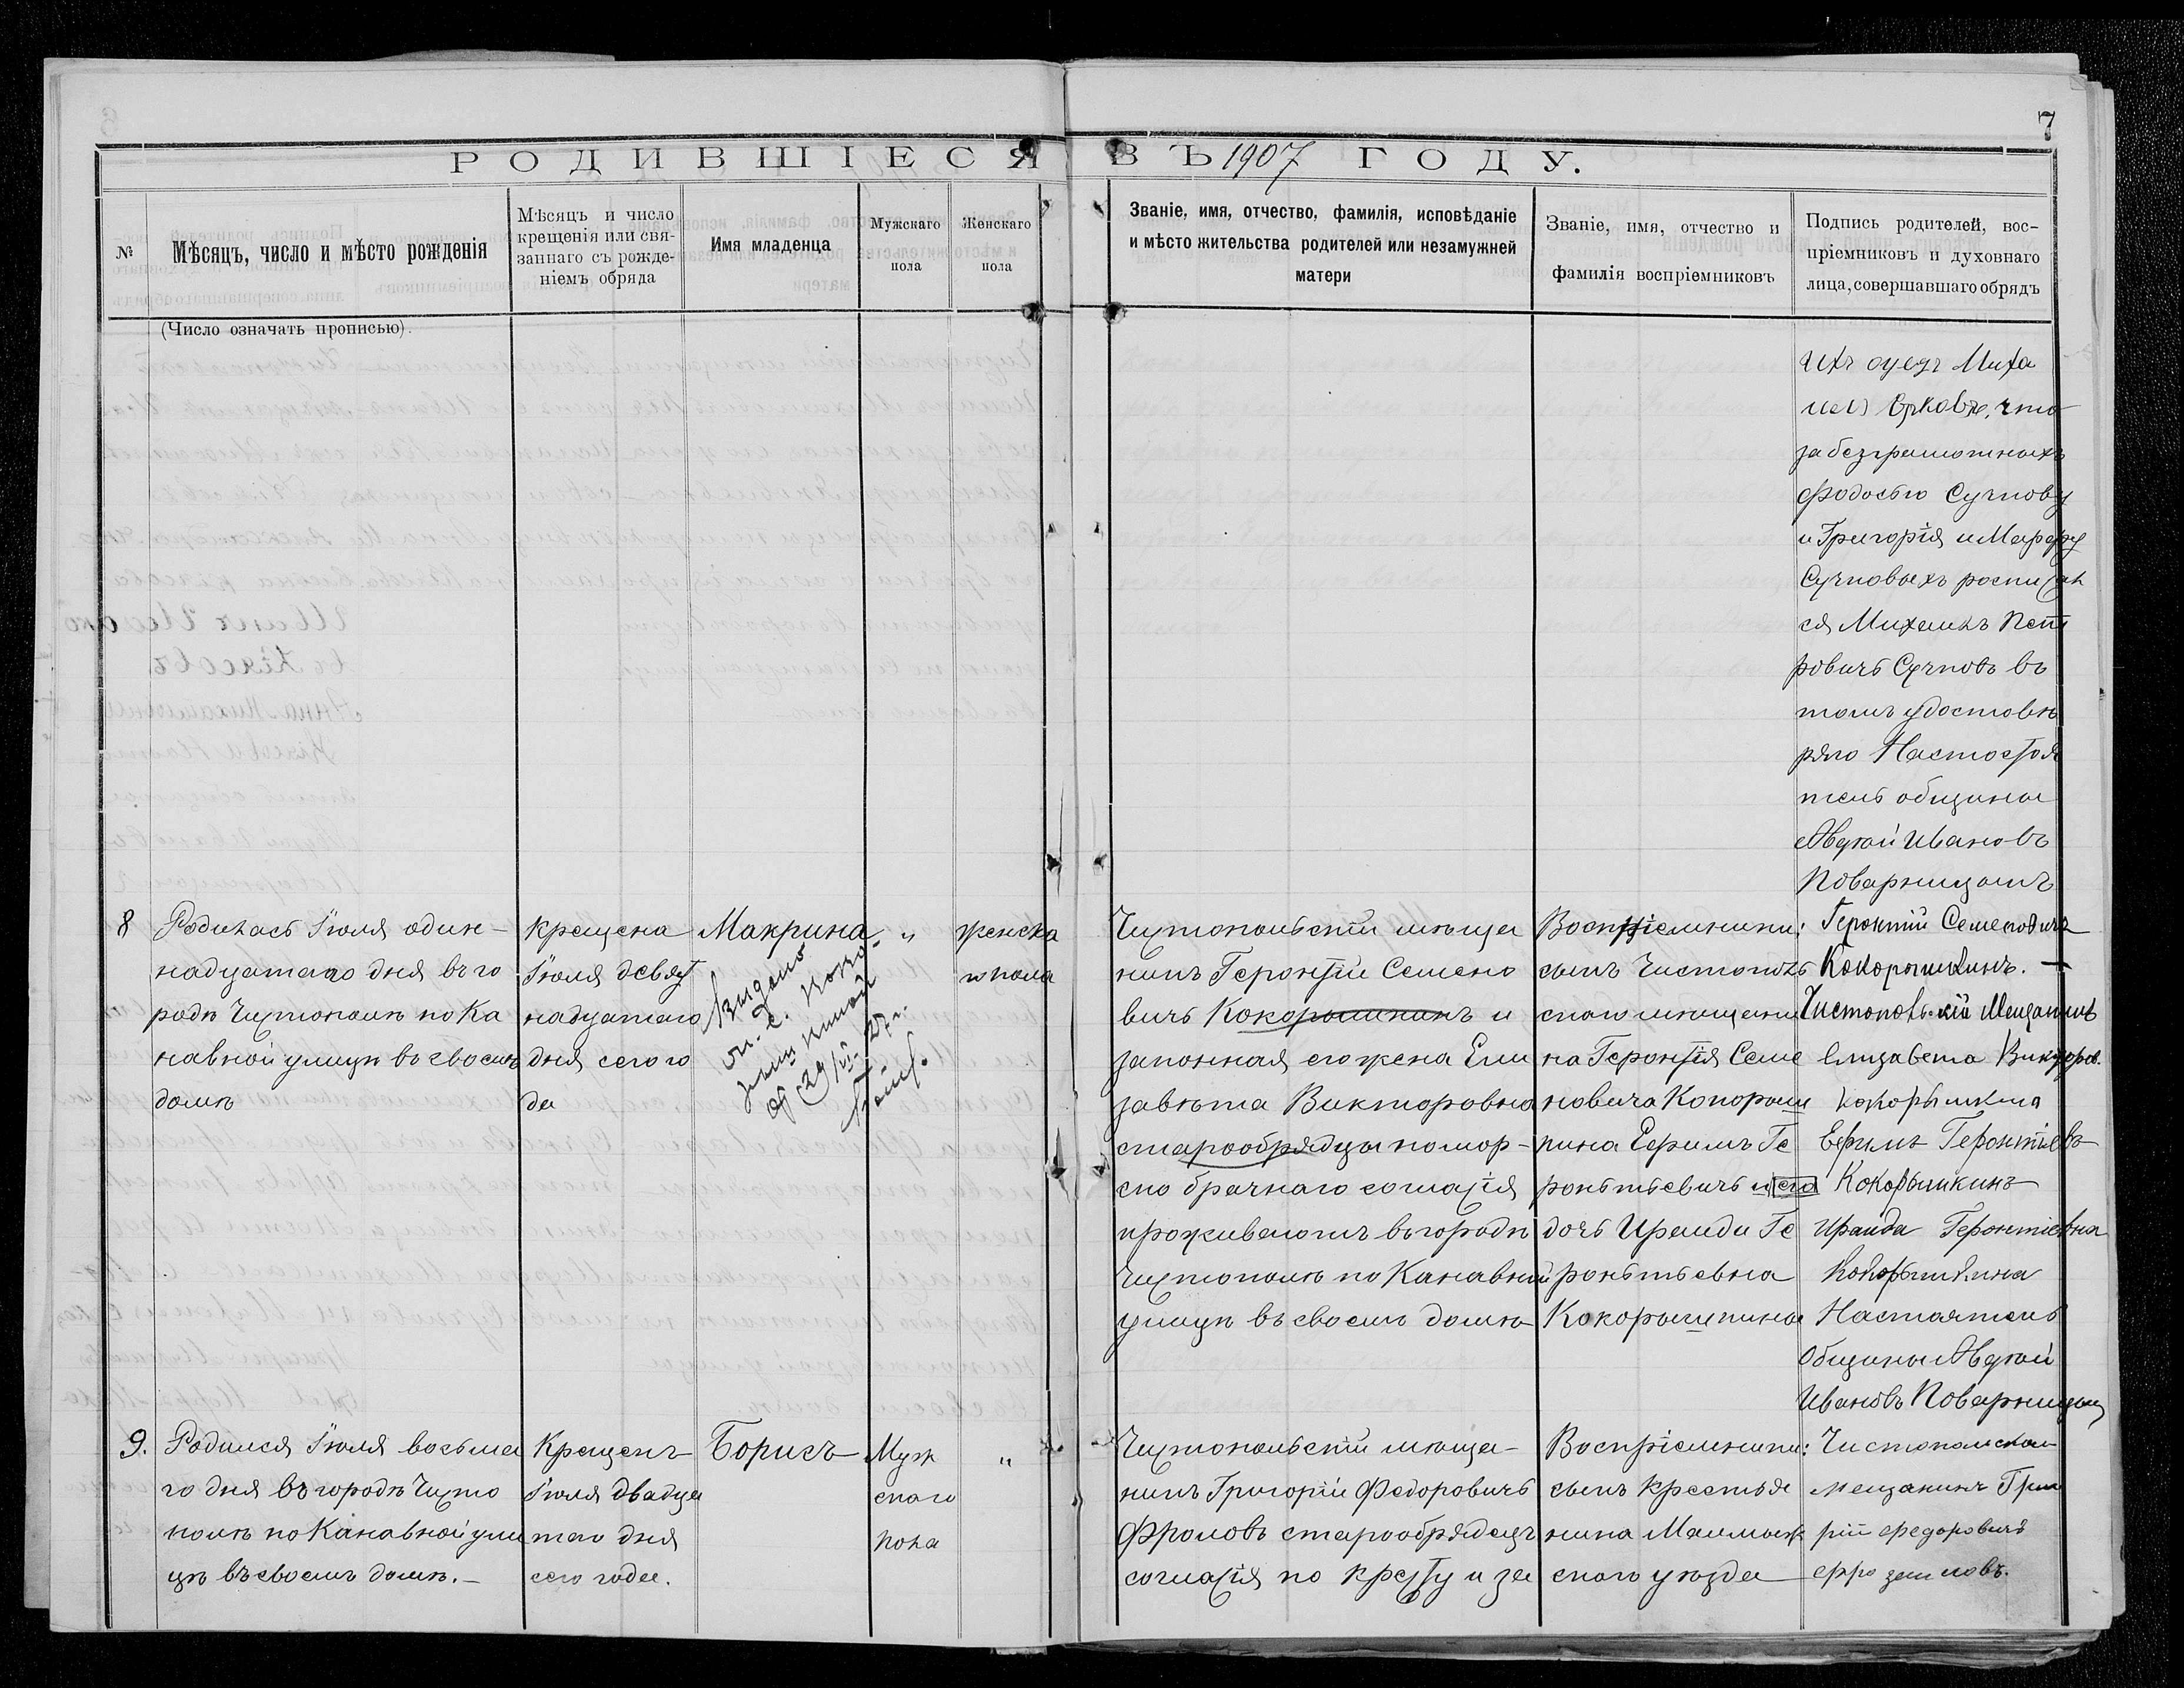 7
РОДИВШІЕСЯ ВЪ 1907 ГОДУ.
№
Мѣсяцъ, число и мѣсто рожденія
Мѣсяцъ и число
крещенія или свя-
заннаго съ рожде-
ніемъ обряда
Имя младенца
Мужскаго
пола
Женскаго
пола
Званіе, имя, отчество, фамилія, исповѣданіе
и мѣсто жительства родителей или незамужней
матери
Званіе, имя, отчество и
фамилія воспріемниковъ
Подпись родителей, вос-
пріемниковъ и духовнаго
лица, совершавшаго обрядъ
(Число означать прописью).
что
за безграмотныхъ
Сучкову
и Григорія и Марфу
Сучковыхъ росписал
ся Михаилъ Пет
ровичъ Сучковъ въ
томъ удостовѣ
ряю Настоя
тель общины
Авдей Ивановъ
Поварницынъ
8
Родилась Іюля один-
надцатаго дня въ го
родѣ Чистополѣ по Ка
навной улицѣ въ своемъ
домѣ
Крещена
Іюля девят
надцатаго
дня сего го
да
Макрина
"
женска
го пола
Чистопольскій мѣща
нинъ Геронтій Семено
вичъ Кокорышкинъ и
законная его жена Ели
завѣта Викторовна
старообрядцы помор-
ско брачнаго согласія
проживаютъ въ городѣ
Чистополѣ по Канавной
улицѣ въ своемъ домѣ
Воспріемники:
сынъ Чистополь
скаго мѣщани
на Геронтія Семе
новича Кокорыш
кина Ефимъ Ге
ронтьевичъ и его
дочь Ираида Ге
ронтьевна
Кокорышкины
Геронтій Семеновичъ
Кокорышкинъ. —
Чистопольскій Мещанинъ
Елизавета Викторов.
Кокорышкина
Ефимъ Геронтіевъ
Кокорышкинъ
Ираида Геронтіевна
Кокорышкина
Настоятель
Общины Авдей
Ивановъ Поварницын
Выдано
9.
Родился Іюля восьма
го дня въ городѣ Чисто
полѣ по Канавной ули
цѣ въ своемъ домѣ. —
Крещенъ
Іюля двадца
таго дня
сего года.
Борисъ
Муж
скаго
пола
"
Чистопольскій мѣща-
нинъ Григорій Федоровичъ
Фроловъ старообрядецъ
согласія по кресту и за
Воспріемники:
сынъ крестья
нина Мамыж
скаго уѣзда
Чистопольскои
мещанинъ Григ
рій Федоровичъ